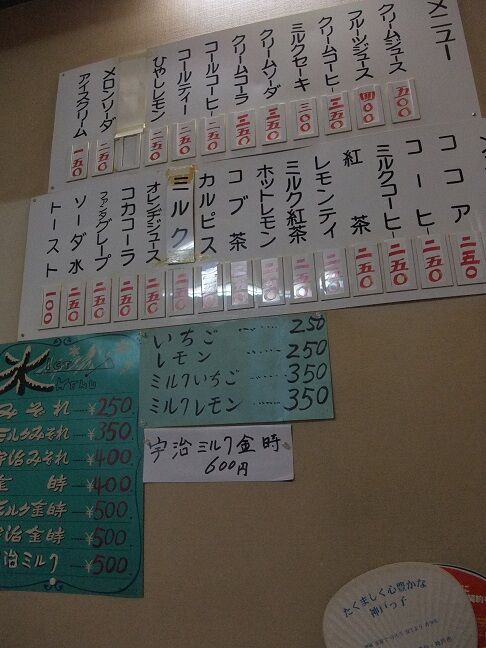 メニュー
クリームジュース 五〇〇
フルーツジュース 四〇〇
クリームコーヒー 三五〇
ミルクセーキ 三〇〇
クリームソーダ 三五〇
クリームコーラ 三五〇
コールコーヒー 二五〇
コールティー 二五〇
ひやしレモン 二五〇
メロンソーダ 二五〇
アイスクリーム 一五〇
ココア 二五〇
コーヒー 二五〇
ミルクコーヒー 二五〇
紅茶 二五〇
レモンティ 二五〇
ミルク紅茶 二五〇
ホットレモン 二五〇
コブ茶 二五〇
カルピス 二五〇
ミルク
オレンヂジュース 二五〇
コカコーラ 二五〇
ファンタグレープ 二五〇
ソーダ水 二五〇
トースト 一〇〇
いちご 250
レモン 250
ミルクいちご 350
ミルクレモン 350
宇治ミルク金時
600円
氷
Menu
みぞれ ¥250
ミルクみぞれ ¥350
宇治みぞれ ¥400
金時 ¥400
ミルク金時 ¥500
宇治金時 ¥500
宇治ミルク ¥500
たくましく心豊かな
神戸っ子